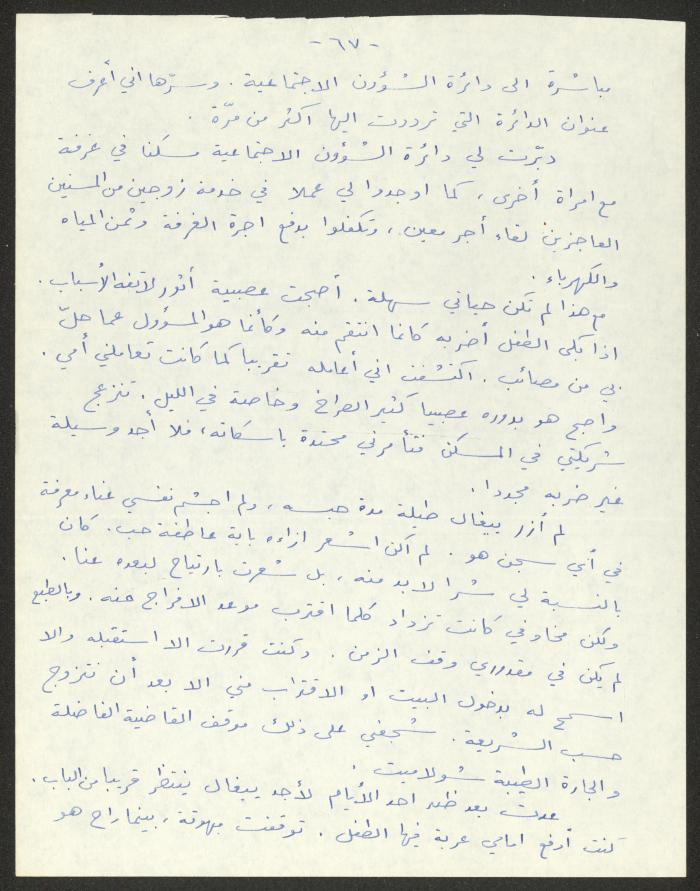 - ٦٧ -
مباشرة الى دائرة الشؤون الاجتماعية. وسرّها اني أعرف
عنوان الدائرة التي ترددت اليها اكثر من مرّة.
دبّرت لي دائرة الشؤون الاجتماعية مسكنا في غرفة
مع امرأة أخرى، كما اوجدوا لي عملا في خدمة زوجين من المسنين
العاجزين لقاء أجر معين، وتكفلوا بدفع اجرة الغرفة وثمن المياه
والكهرباء.
مع هذا لم تكن حياتي سهلة. أصبحت عصبية أثور لاتفه الأسباب.
اذا بكى الطفل أضربه كانما انتقم منه وكأنما هو المسؤول عما حلّ
بي من مصائب. اكتشفت اني أعامله تقريبا كما كانت تعاملني أمي.
واصبح هو بدوره عصبيا كثير الصراخ وخاصة في الليل. تنزعج
شريكتي في المسكن فتأمرني محتدة باسكاته، فلا أجد وسيلة
غير ضربه مجددا.
لم أزر ييغال طيلة مدة حبسه، ولم اجشم نفسي عناء معرفة
في أي سجن هو. لم اكن اشعر ازاءه باية عاطفة حب. كان
بالنسبة لي شرا لابد منه، بل شعرت بارتياح لبعده عنا.
ولكن مخاوفي كانت تزداد كلما اقترب موعد الافراج عنه. وبالطبع
لم يكن في مقدوري وقف الزمن. وكنت قررت الا استقبله والا
اسمح له بدخول البيت او الاقتراب مني الا بعد أن نتزوج
حسب الشريعة. شجعني على ذلك موقف القاضية الفاضلة
والجارة الطيبة شولاميت.
عدت بعد ظهر احد الأيام لأجد ييغال ينتظر قريبا من الباب.
كنت أدفع امامي عربة فيها الطفل. توقفت مبهوتة، بينما راح هو